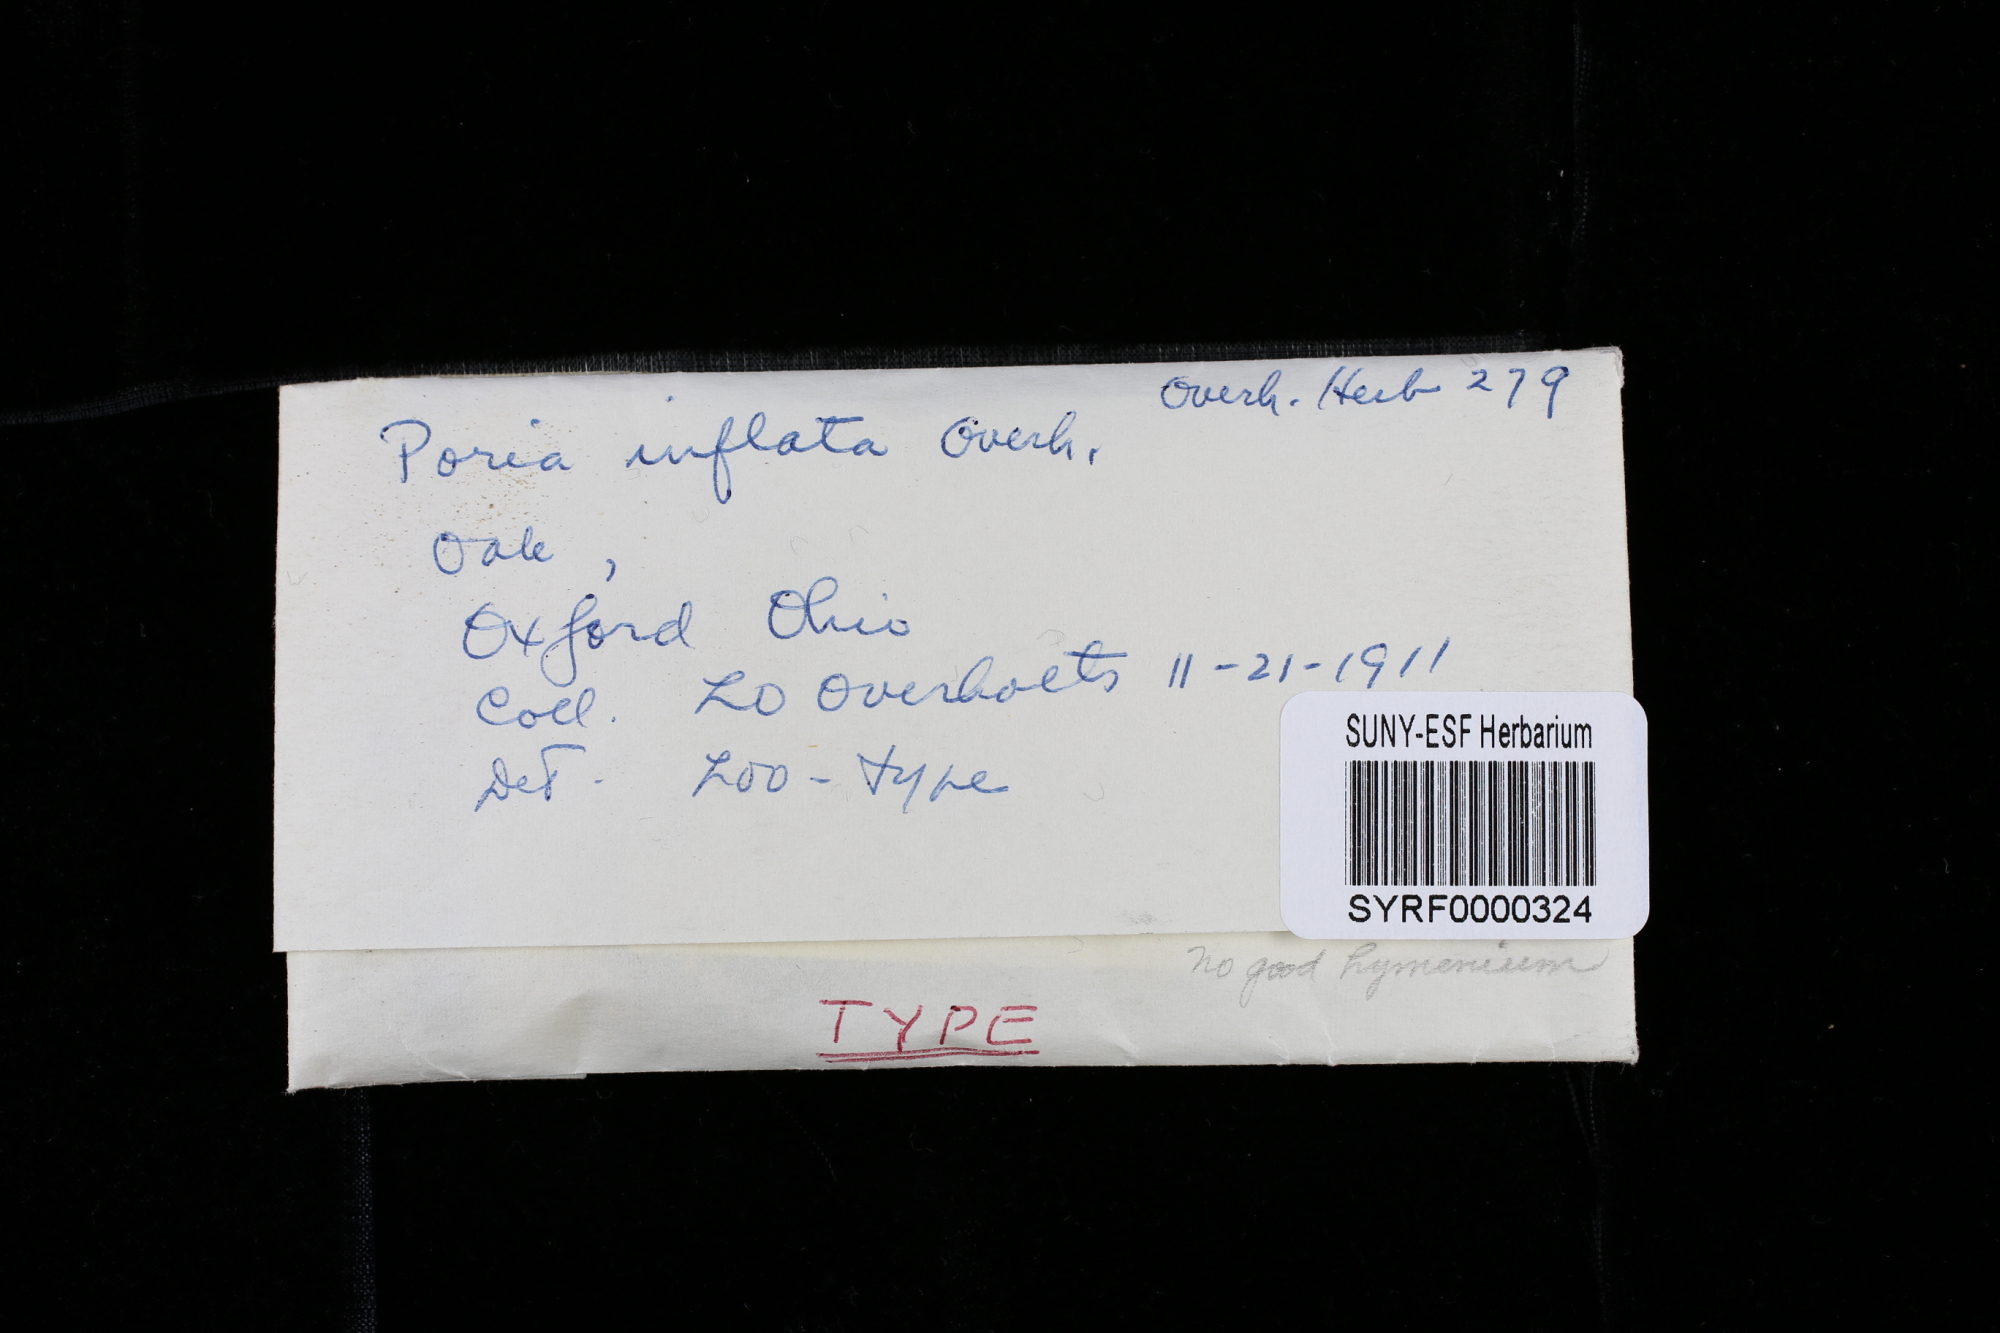 Overh. Herb 279
Poria inflata Overh.
Oak,
Oxford Ohio
Coll. LO Overholts 11-21-1911
Det. LOO - type
SUNY-ESF Herbarium
SYRF0000324
No good hymenium
TYPE